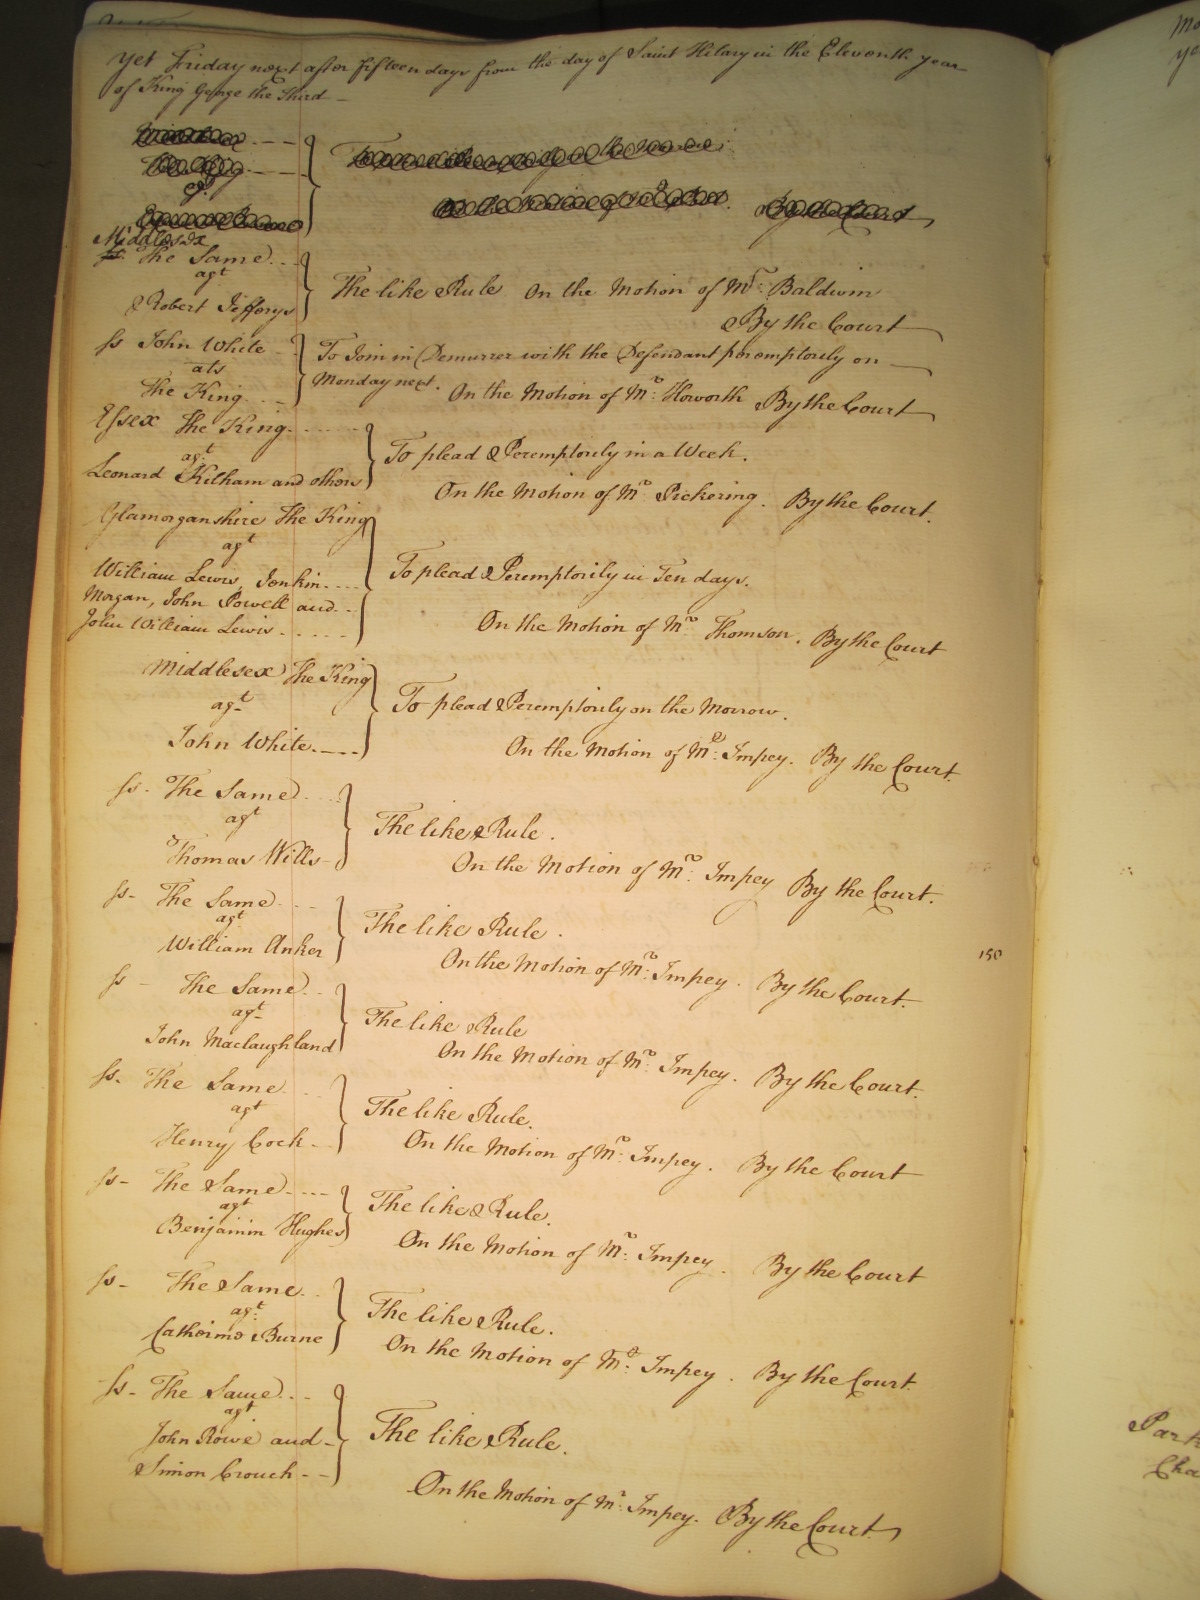 Yet Friday next after fifteen days from the day of Saint Hilary in the Eleventh year
of King George the Third
agt
By the Court
Middlesex
ss. The Same
agt
Robert Jefferys
The like Rule On the Motion of Mr. Baldwin
By the Court
ss John White
ats
The King
To Join in Demurrer with the Defendant peremptorily on
Monday next. On the Motion of Mr. Howorth By the Court
Essex The King
agt
Leonard Kilham and others
To plead Peremptorily in a Week.
On the Motion of Mr. Pickering. By the Court.
Glamorganshire The King
agt
William Lewis, Jenkin
Morgan, John Powell and
John William Lewis
To plead Peremptorily in Ten days.
On the Motion of Mr. Thomson. By the Court
Middlesex The King
agt
John White
To plead Peremptorily on the Morrow.
On the Motion of Mr. Impey. By the Court.
ss. The Same
agt
Thomas Wills
The like Rule.
On the Motion of Mr. Impey By the Court.
ss- The Same
agt
William Anker
The like Rule.
On the Motion of Mr. Impey. By the Court.
ss - The Same
agt
John Maclaughland
The like Rule
On the Motion of Mr. Impey. By the Court.
ss. The Same
agt
Henry Cock
The like Rule.
On the Motion of Mr. Impey. By the Court
ss- The Same
agt
Benjamin Hughes
The like Rule.
On the Motion of Mr. Impey. By the Court
ss- The Same
agt
Catherine Burne
The like Rule.
On the Motion of Mr. Impey. By the Court.
ss- The Same
agt
John Rowe and
Simon Crouch
The like Rule.
On the Motion of Mr. Impey. By the Court
150